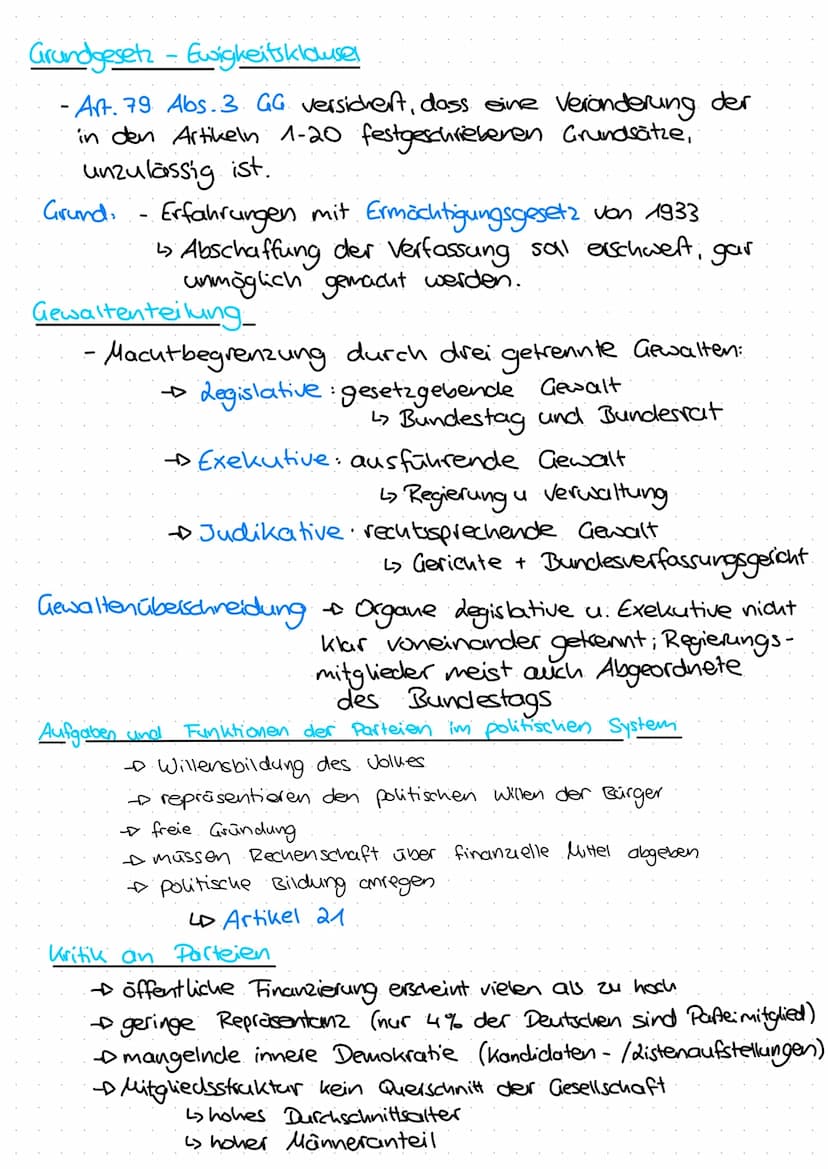 Grundgesetz - Ewigkeitsklausel
- Art. 79 Abs. 3 GG versichert, dass eine Veränderung der
in den Artikeln 1-20 festgeschriebenen Grundsätze,
unzulässig ist.
Grund: - Erfahrungen mit Ermächtigungsgesetz von 1933
↳ Abschaffung der Verfassung soll erschwert, gar
unmöglich gemacht werden.
Gewaltenteilung
- Machtbegrenzung durch drei getrennte Gewalten:
→ Legislative: gesetzgebende Gewalt
↳ Bundestag und Bundesrat
→ Exekutive: ausführende Gewalt
↳ Regierung u Verwaltung
→ Judikative: rechtssprechende Gewalt
↳ Gerichte + Bundesverfassungsgericht
Gewaltenüberschneidung → Organe Legislative u. Exekutive nicht
klar voneinander getrennt; Regierungs-
mitglieder meist auch Abgeordnete
des Bundestags
Aufgaben und Funktionen der Parteien im politischen System
→ Willensbildung des Volkes
→ repräsentieren den politischen Willen der Bürger
→ freie Gründung
→ müssen Rechenschaft über finanzielle Mittel abgeben
→ politische Bildung anregen
↳ Artikel 21
Kritik an Parteien
→ öffentliche Finanzierung erscheint vielen als zu hoch
→ geringe Repräsentanz (nur 4% der Deutschen sind Parteimitglied)
→ mangelnde innere Demokratie (Kandidaten- /Listenaufstellungen)
→ Mitgliedsstruktur kein Querschnitt der Gesellschaft
↳ hohes Durchschnittsalter
↳ hoher Männeranteil